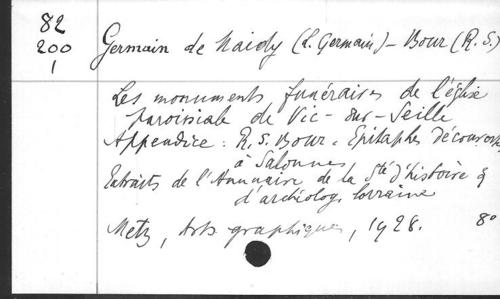 82
200
1
Germain de Maidy (L. Germain) - Bour (R. S.)
Les monuments funéraires de l'église
paroissiale de Vic-sur-Seille
Appendice : R. S. Bour. Epitaphes découvertes
à Salonnes
Extraits de l'Annuaire de la Sté d'histoire &
d'archéolog. lorraine
Metz, Arts graphiques, 1928. 8°